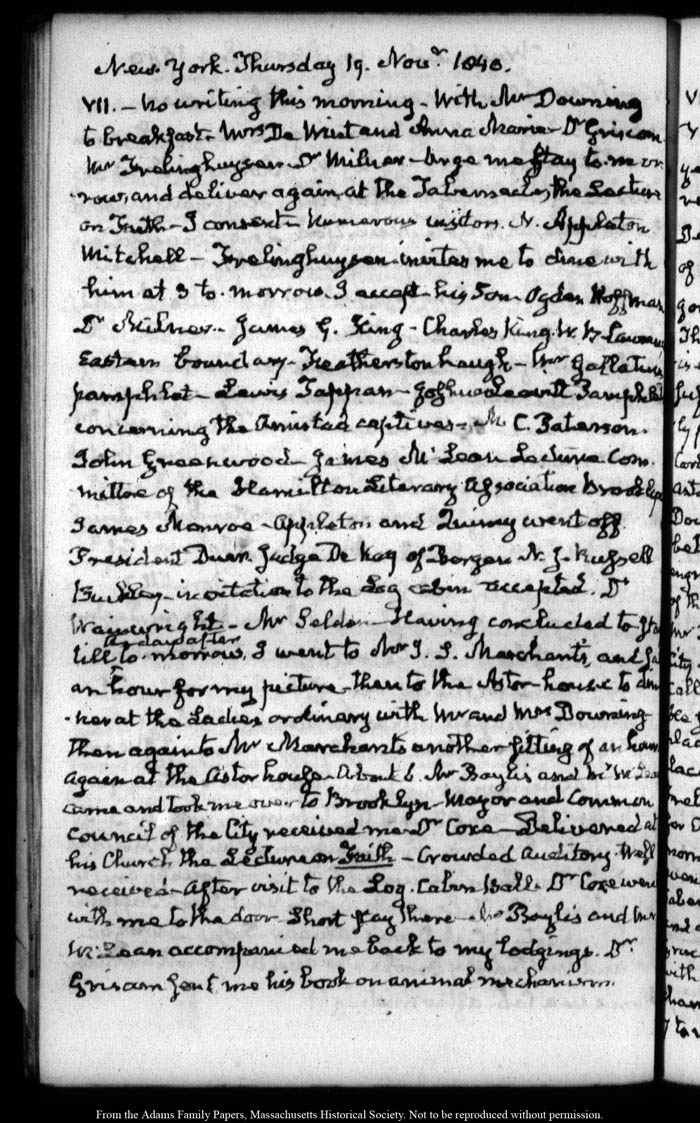 New York. Thursday 19. Novr. 1840.
VII. — No writing this morning — With Mr Downing
to breakfast. Mrs De Wint and Anna Maria — Dr Griscom
Mr Frelinghuysen. Dr Milnor — Urge me stay to-mor
-row, and deliver again, at the Tabernacle, the Lecture
on Faith — I consent — Numerous visitors. N. Appleton
Mitchell — Frelinghuysen invites me to dine with
him at 3 to-morrow. I accept — his Son. Ogden Hoffman
Dr Milnor — James G. King — Charles King. W. B. Lawren
Eastern boundary — Featherstonhaugh — Mr Gallatin's
pamphlet — Lewis Tappan — Joshua Leavitt Pamphlet
concerning the Amistad captives — M. C. Paterson.
John Greenwood — James McLean Lecture Com-
mittee of the Hamilton Literary Association Brooklyn
James Monroe — Appleton and Quincy went off
President Duer. Judge De Kay of Bergen N. J. Russell
Buckley — invitation to the Log cabin accepted. Dr
Wainwright — Mr Selden — Having concluded to sta
the day after
till to-morrow, I went to Mr J. S. Marchant's, and sa
an hour for my picture — then to the Astor-house to din
-ner at the Ladies ordinary with Mr and Mrs Downing
Then again to Mr Marchant's another sitting of an hour
again at the Astor house — About 6. Mr Baylis and Mr McLea
came and took me over to Brooklyn — Mayor and Common
Council of the City received me — Dr Coxe — Delivered at
his Church the Lecture on Faith — Crowded Auditory. Well
received — After visit to the Log-Cabin Ball. Dr Coxe wen
with me to the door — Short stay there — Mr Baylis and Mr
McLean accompanied me back to my lodgings. Dr.
Griscom sent me his book on animal mechanism.
From the Adams Family Papers, Massachusetts Historical Society. Not to be reproduced without permission.